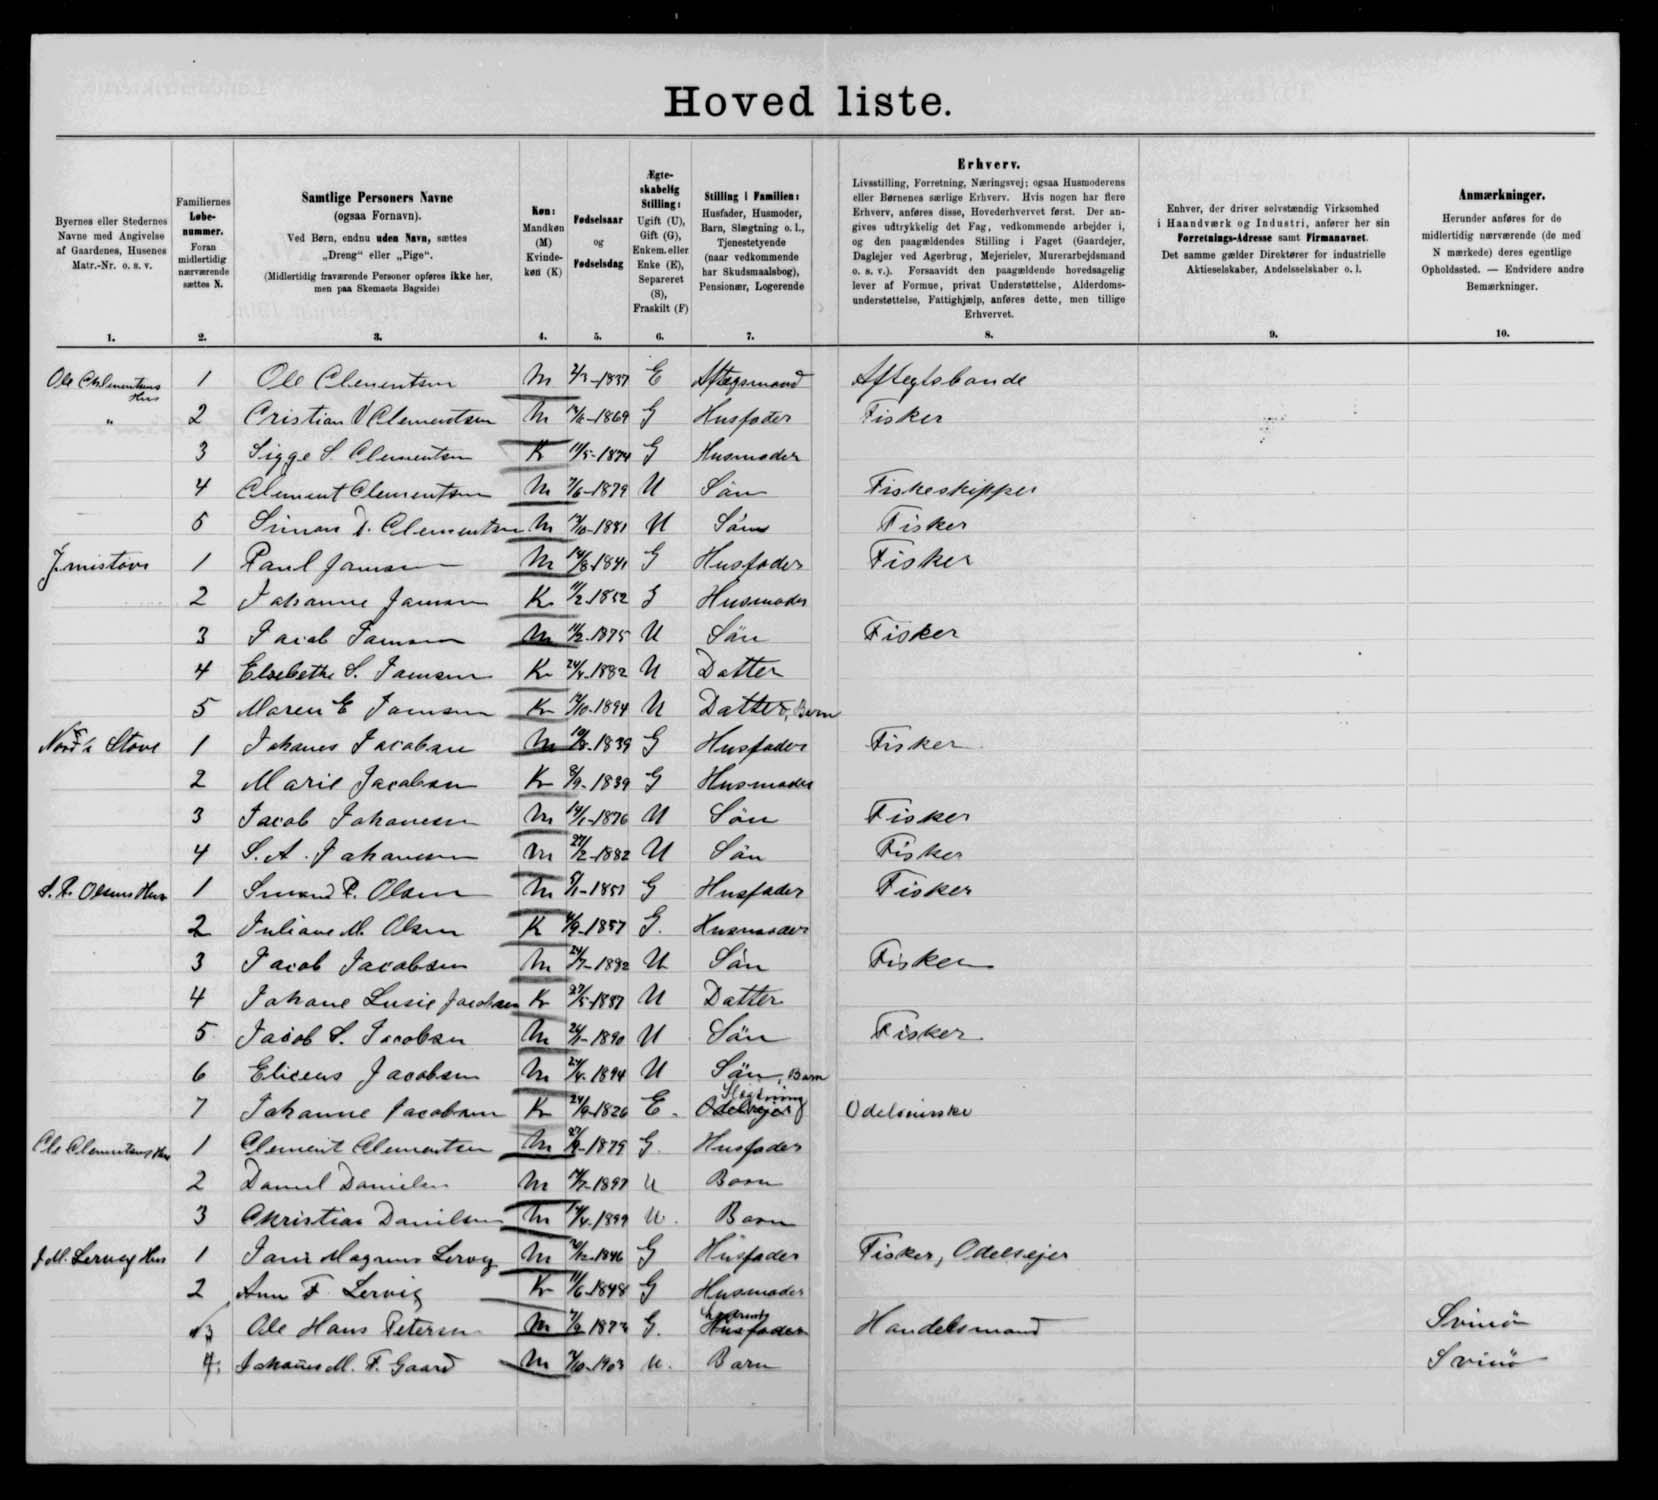 Hoved liste.
Byernes eller Stedernes Navne med Angivelse af Gaardenes, Husenes Matr.-Nr. o. s. v.
Familiernes Løbenummer. Foran midlertidig nærværende sættes N.
Samtlige Personers Navne (ogsaa Fornavn). Ved Børn, endnu uden Navn, sættes „Dreng" eller „Pige". (Midlertidig fraværende Personer opføres ikke her, men paa Skemaets Bagside)
Køn: Mandkøn (M) Kvindekøn (K)
Fødselsaar og Fødselsdag
Ægteskabelig Stilling: Ugift (U), Gift (G), Enkem. eller Enke (E), Separeret (S), Fraskilt (F)
Stilling i Familien: Husfader, Husmoder, Barn, Slægtning o. l., Tjenestetyende (naar vedkommende har Skudsmaalsbog), Pensionær, Logerende
Erhverv. Livsstilling, Forretning, Næringsvej; ogsaa Husmoderens eller Børnenes særlige Erhverv. Hvis nogen har flere Erhverv, anføres disse, Hovederhvervet først. Der angives udtrykkelig det Fag, vedkommende arbejder i, og den paagældendes Stilling i Faget (Gaardejer, Daglejer ved Agerbrug, Mejerielev, Murerarbejdsmand o. s. v.). Forsaavidt den paagældende hovedsagelig lever af Formue, privat Understøttelse, Alderdomsunderstøttelse, Fattighjælp, anføres dette, men tillige Erhvervet.
Enhver, der driver selvstændig Virksomhed i Haandværk og Industri, anfører her sin Forretnings-Adresse samt Firmanavnet. Det samme gælder Direktører for industrielle Aktieselskaber, Andelsselskaber o. l.
Anmærkninger. Herunder anføres for de midlertidig nærværende (de med N mærkede) deres egentlige Opholdssted. — Endvidere andre Bemærkninger.
1. 2. 3. 4. 5. 6. 7. 8. 9. 10.
Ole Clementsens Hus 1 Ole Clementsen M 1837 E Aftægsmand
" 2 Cristian V Clementsen M 1869 G Husfader Fisker
3 Sigge S. Clementsen K 11/5-1874 G Husmoder
4 Clement Clementsen M 7/6-1879 U Sön Fiskeskipper
5 Simon D. Clementsen M 1881 U Sön Fisker
1 Paul Jamsen M 14/8-1841 G Husfader Fisker
2 Johanne Jamsen K 11/2-1852 G Husmoder
3 Jacob Jamsen M 11/2-1875 U Sön Fisker
4 Elsebethe S. Jamsen K 1882 U Datter
5 Maren E Jamsen K 1894 U Datter, Barn
Stove 1 Johanes Jacobsen M 1839 G Husfader Fisker
2 Marie Jacobsen K 8/9-1839 G Husmoder
3 Jacob Johanesen M 14/1-1876 U Sön Fisker
4 S. A. Johanesen M 27/2-1882 U Sön Fisker
S. P. Olsens Hus 1 P. Olsen M 1851 G Husfader Fisker
2 Juliane M. Olsen K 1857 G. Husmoder
3 Jacob Jacobsen M 1882 U Sön Fisker
4 Johane Lusie Jacobsen K 27/5-1887 U Datter
5 Jacob S. Jacobsen M 1890 U Sön Fisker
6 Eliceus Jacobsen M 24/4-1894 U Sön, Barn
7 Johanne Jacobsen K 24/9-1826 E. Odelsejer
Ole Clementsens Hus 1 Clement Clementsen M 1879 G. Husfader
2 Daniel Danielsen M 1897 U Barn
3 Christian Danilsen M 1899 U. Barn
J. M. Lervig Hus 1 Magnus Lervig M 1846 G Husfader Fisker, Odelsejer
2 Ann F. Lervig K 11/6-1848 G Husmoder
3 Ole Hans Petersen M G. Husfader Handelsmand Svinö
4. Johanes M. F. Gaard M 1903 U. Barn Svinö